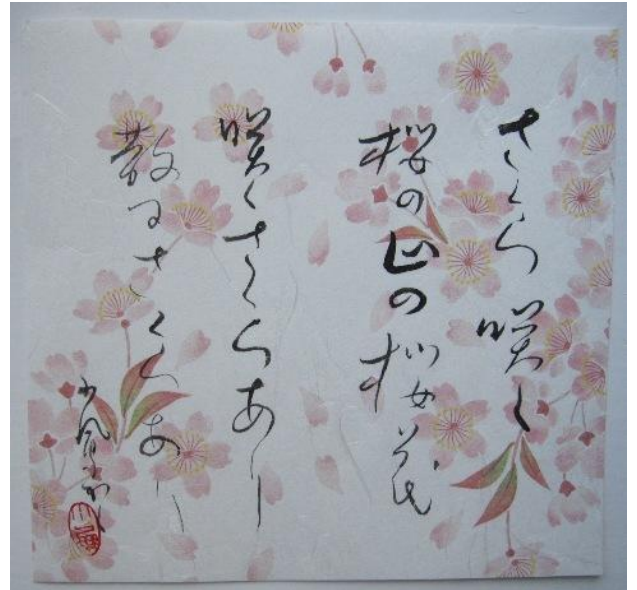 さくら咲く
桜の山の桜花
咲くさくらあり
散るさくらあり